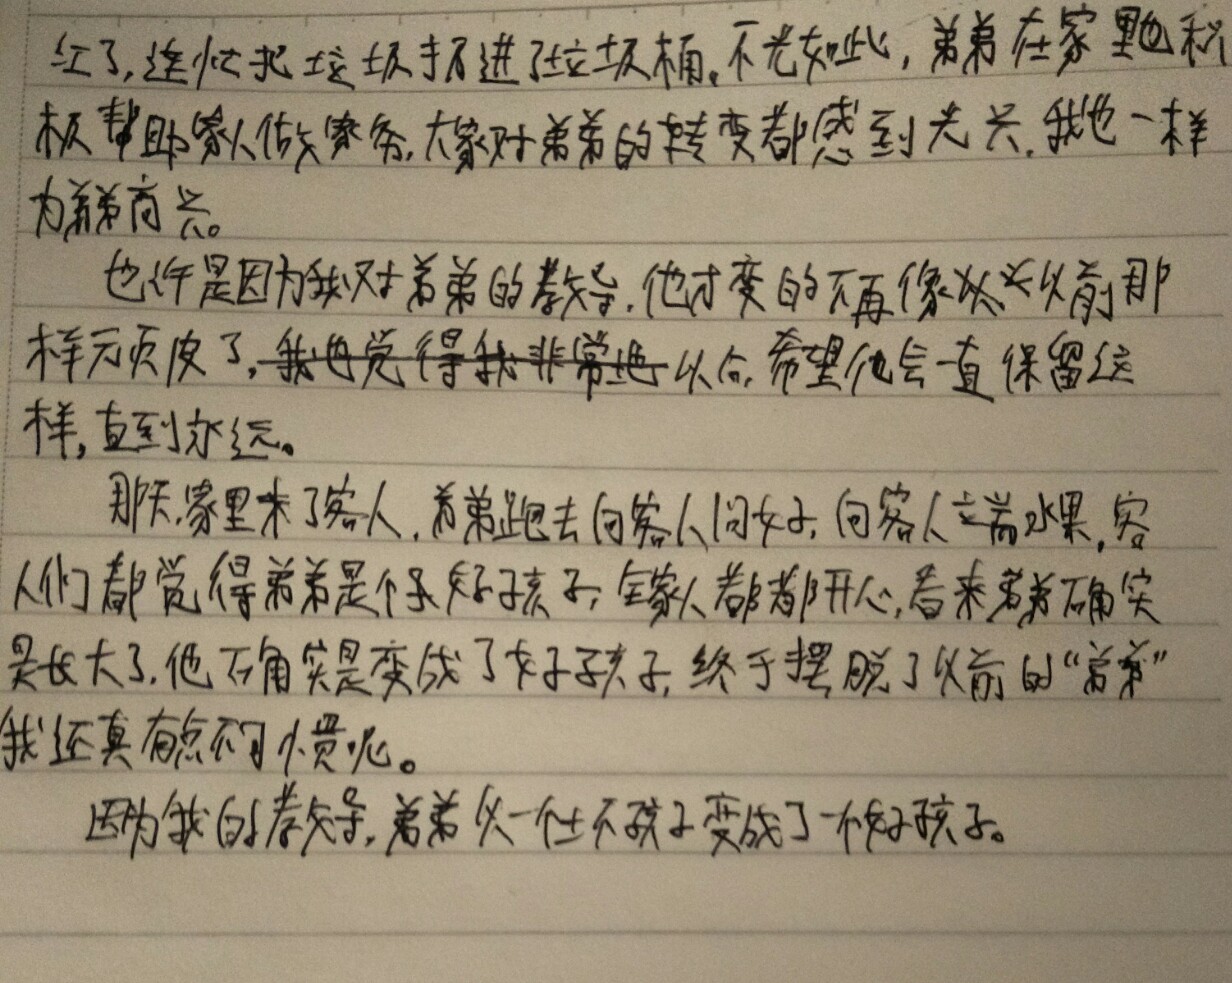 红了,连忙把垃圾扔进了垃圾桶。不光如此,弟弟在家里也积
极帮助家人做家务,大家对弟弟的转变都感到光兴,我也一样
为弟弟高兴。
也许是因为我对弟弟的教导,他才变的不再像以前那
样顽皮了,我也觉得我非常地以后,希望他会一直保留这
样,直到永远。
那天,家里来了客人,弟弟跑去向客人问好,向客人端水果,客
人们都觉得弟弟是个好孩子,全家人都开心,看来弟弟确实
是长大了,他确实是变成了好孩子,终于摆脱了以前的“弟弟”
我还真有点不习惯呢。
因为我的教导,弟弟从一个坏孩子变成了一个好孩子。